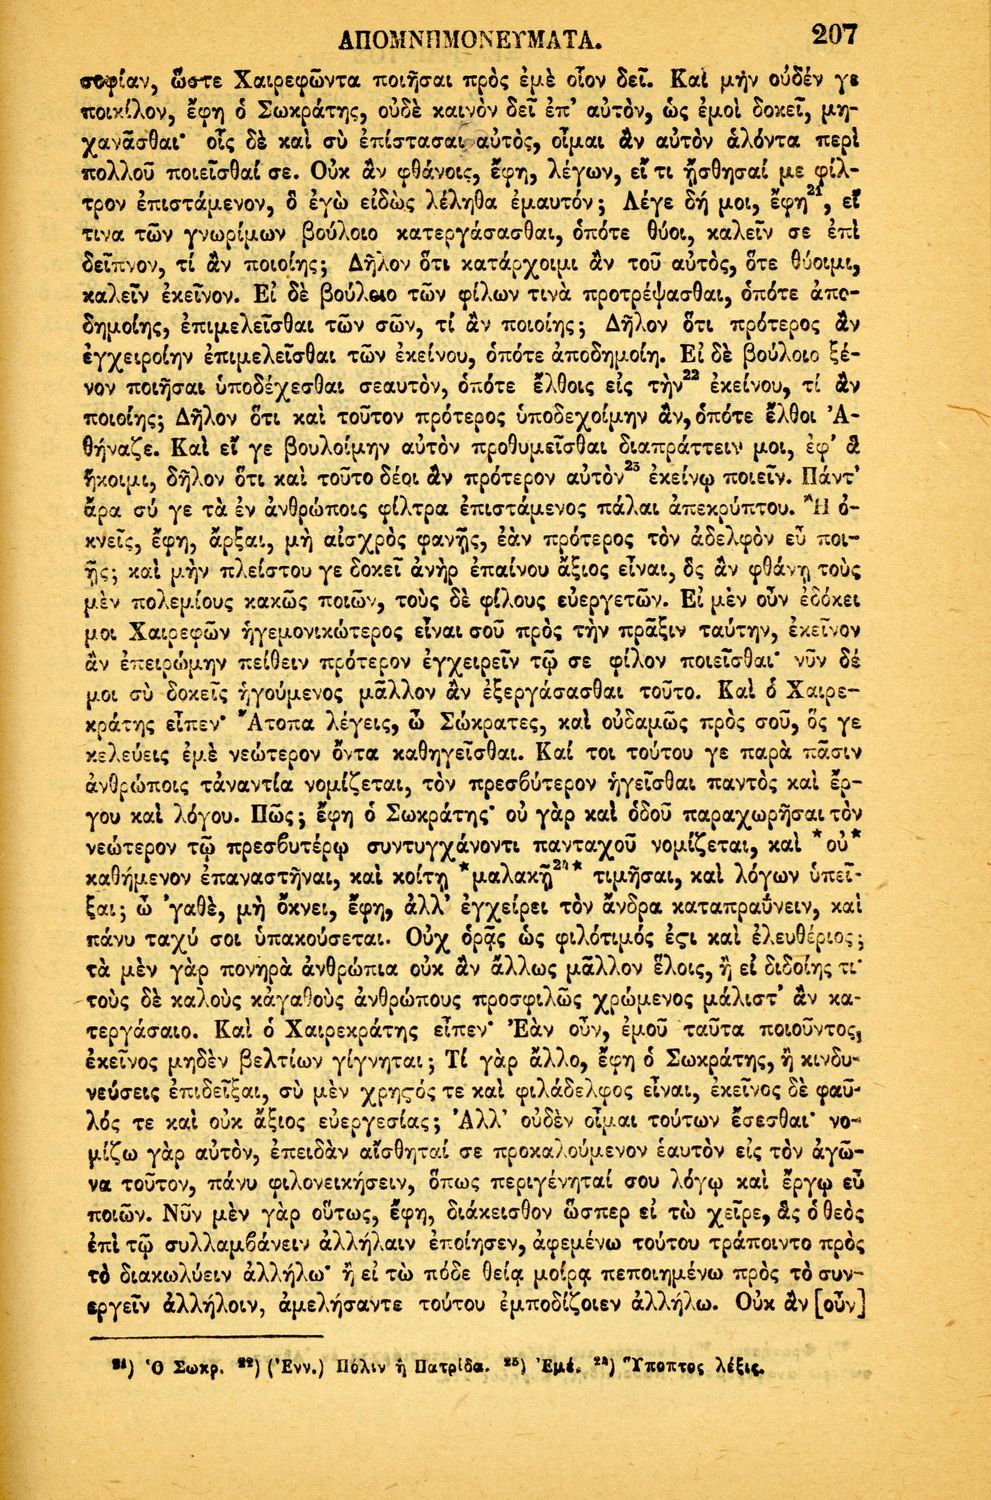 ΑΠΟΜΝΗΜΟΝΕΥΜΑΤΑ. 207
σοφίαν, ὥστε Χαιρεφῶντα ποιῆσαι πρὸς ἐμὲ οἷον δεῖ. Καὶ μὴν οὐδέν γε
ποικίλον, ἔφη ὁ Σωκράτης, οὐδὲ καινὸν δεῖ ἐπ' αὐτὸν, ὡς ἐμοὶ δοκεῖ, μη-
χανᾶσθαι· οἷς δὲ καὶ σὺ ἐπίστασαι αὐτὸς, οἶμαι ἂν αὐτὸν ἁλόντα περὶ
πολλοῦ ποιεῖσθαί σε. Οὐκ ἂν φθάνοις, ἔφη, λέγων, εἴ τι ᾔσθησαί με φίλ-
τρον ἐπιστάμενον, ὃ ἐγὼ εἰδὼς λέληθα ἐμαυτόν; Λέγε δή μοι, ἔφη²¹, εἴ
τινα τῶν γνωρίμων βούλοιο κατεργάσασθαι, ὁπότε θύοι, καλεῖν σε ἐπὶ
δεῖπνον, τί ἂν ποιοίης; Δῆλον ὅτι κατάρχοιμι ἂν τοῦ αὐτὸς, ὅτε θύοιμι,
καλεῖν ἐκεῖνον. Εἰ δὲ βούλοιο τῶν φίλων τινὰ προτρέψασθαι, ὁπότε ἀπο-
δημοίης, ἐπιμελεῖσθαι τῶν σῶν, τί ἂν ποιοίης; Δῆλον ὅτι πρότερος ἂν
ἐγχειροίην ἐπιμελεῖσθαι τῶν ἐκείνου, ὁπότε ἀποδημοίη. Εἰ δὲ βούλοιο ξέ-
νον ποιῆσαι ὑποδέχεσθαι σεαυτὸν, ὁπότε ἔλθοις εἰς τὴν²² ἐκείνου, τί ἂν
ποιοίης; Δῆλον ὅτι καὶ τοῦτον πρότερος ὑποδεχοίμην ἂν, ὁπότε ἔλθοι Ἀ-
θήναζε. Καὶ εἴ γε βουλοίμην αὐτὸν προθυμεῖσθαι διαπράττειν μοι, ἐφ' ἃ
ἥκοιμι, δῆλον ὅτι καὶ τοῦτο δέοι ἂν πρότερον αὐτὸν²³ ἐκείνῳ ποιεῖν. Πάντ'
ἄρα σύ γε τὰ ἐν ἀνθρώποις φίλτρα ἐπιστάμενος πάλαι ἀπεκρύπτου. Ἢ ὀ-
κνεῖς, ἔφη, ἄρξαι, μὴ αἰσχρὸς φανῇς, ἐὰν πρότερος τὸν ἀδελφὸν εὖ ποι-
ῇς; καὶ μὴν πλείστου γε δοκεῖ ἀνὴρ ἐπαίνου ἄξιος εἶναι, ὃς ἂν φθάνῃ τοὺς
μὲν πολεμίους κακῶς ποιῶν, τοὺς δὲ φίλους εὐεργετῶν. Εἰ μὲν οὖν ἐδόκει
μοι Χαιρεφῶν ἡγεμονικώτερος εἶναι σοῦ πρὸς τὴν πρᾶξιν ταύτην, ἐκεῖνον
ἂν ἐπειρώμην πείθειν πρότερον ἐγχειρεῖν τῷ σε φίλον ποιεῖσθαι· νῦν δέ
μοι σὺ δοκεῖς ἡγούμενος μᾶλλον ἂν ἐξεργάσασθαι τοῦτο. Καὶ ὁ Χαιρε-
κράτης εἶπεν· Ἄτοπα λέγεις, ὦ Σώκρατες, καὶ οὐδαμῶς πρὸς σοῦ, ὅς γε
κελεύεις ἐμὲ νεώτερον ὄντα καθηγεῖσθαι. Καί τοι τούτου γε παρὰ πᾶσιν
ἀνθρώποις τἀναντία νομίζεται, τὸν πρεσβύτερον ἡγεῖσθαι παντὸς καὶ ἔρ-
γου καὶ λόγου. Πῶς; ἔφη ὁ Σωκράτης· οὐ γὰρ καὶ ὁδοῦ παραχωρῆσαι τὸν
νεώτερον τῷ πρεσβυτέρῳ συντυγχάνοντι πανταχοῦ νομίζεται, καὶ *οὐ*
καθήμενον ἐπαναστῆναι, καὶ κοίτῃ *μαλακῇ²⁴* τιμῆσαι, καὶ λόγων ὑπεῖ-
ξαι; ὦ 'γαθὲ, μὴ ὄκνει, ἔφη, ἀλλ' ἐγχείρει τὸν ἄνδρα καταπραΰνειν, καὶ
πάνυ ταχύ σοι ὑπακούσεται. Οὐχ ὁρᾷς ὡς φιλότιμός ἐϛι καὶ ἐλευθέριος;
τὰ μὲν γὰρ πονηρὰ ἀνθρώπια οὐκ ἂν ἄλλως μᾶλλον ἕλοις, ἢ εἰ διδοίης τι·
τοὺς δὲ καλοὺς κἀγαθοὺς ἀνθρώπους προσφιλῶς χρώμενος μάλιστ' ἂν κα-
τεργάσαιο. Καὶ ὁ Χαιρεκράτης εἶπεν· Ἐὰν οὖν, ἐμοῦ ταῦτα ποιοῦντος,
ἐκεῖνος μηδὲν βελτίων γίγνηται; Τί γὰρ ἄλλο, ἔφη ὁ Σωκράτης, ἢ κινδυ-
νεύσεις ἐπιδεῖξαι, σὺ μὲν χρηϛός τε καὶ φιλάδελφος εἶναι, ἐκεῖνος δὲ φαῦ-
λός τε καὶ οὐκ ἄξιος εὐεργεσίας; Ἀλλ' οὐδὲν οἶμαι τούτων ἔσεσθαι· νο-
μίζω γὰρ αὐτὸν, ἐπειδὰν αἴσθηταί σε προκαλούμενον ἑαυτὸν εἰς τὸν ἀγῶ-
να τοῦτον, πάνυ φιλονεικήσειν, ὅπως περιγένηταί σου λόγῳ καὶ ἔργῳ εὖ
ποιῶν. Νῦν μὲν γὰρ οὕτως, ἔφη, διάκεισθον ὥσπερ εἰ τὼ χεῖρε, ἃς ὁ θεὸς
ἐπὶ τῷ συλλαμβάνειν ἀλλήλαιν ἐποίησεν, ἀφεμένω τούτου τράποιντο πρὸς
τὸ διακωλύειν ἀλλήλω· ἢ εἰ τὼ πόδε θείᾳ μοίρᾳ πεποιημένω πρὸς τὸ συν-
εργεῖν ἀλλήλοιν, ἀμελήσαντε τούτου ἐμποδίζοιεν ἀλλήλω. Οὐκ ἂν [οὖν]
²¹) Ὁ Σωκρ. ²²) (Ἐνν.) Πόλιν ἢ Πατρίδα. ²³) Ἐμέ. ²⁴) Ὕποπτος λέξις.